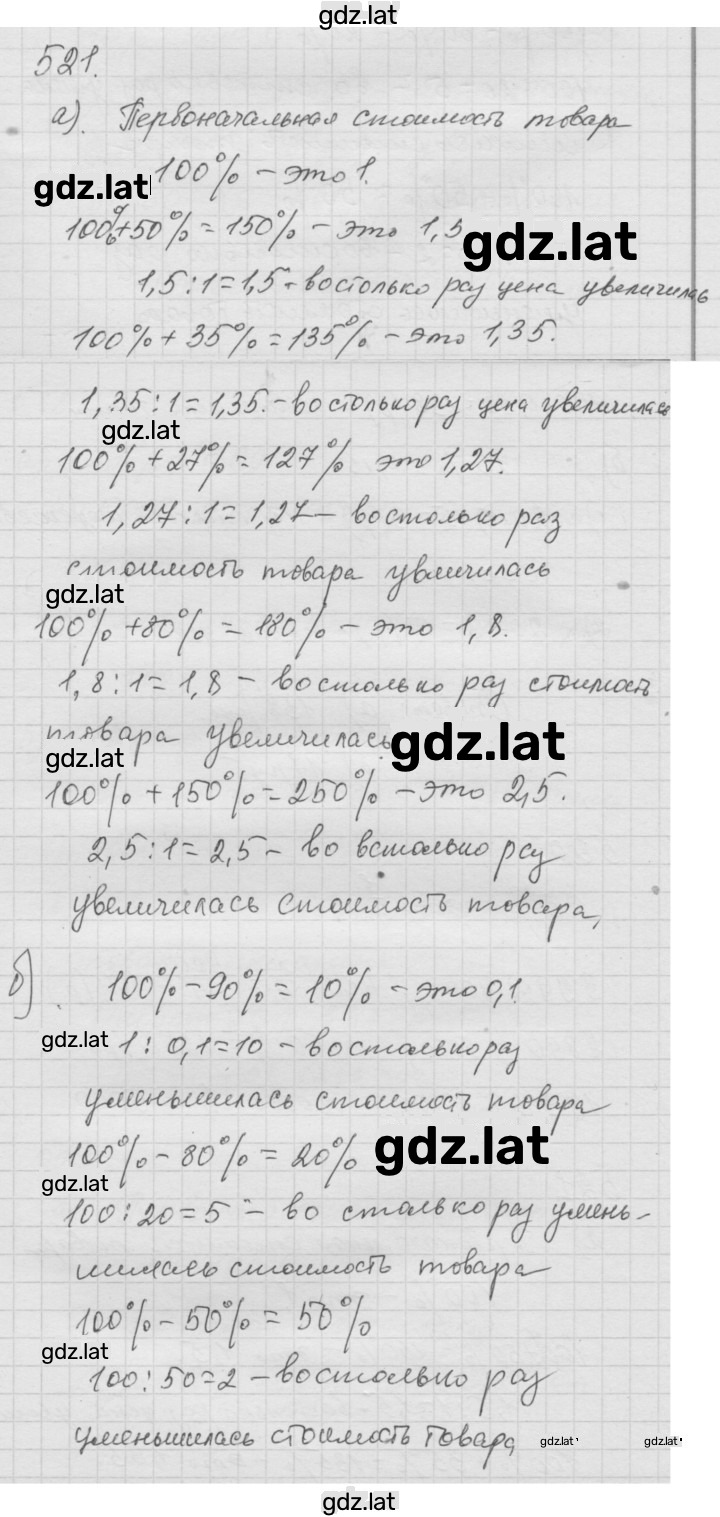 gdz.lat
521.
а). Первоначальная стоимость товара
gdz.lat 100% – это 1.
100%+50% = 150% – это 1,5 gdz.lat
1,5 : 1 = 1,5 – во столько раз цена увеличилась
100% + 35% = 135% – это 1,35.
1,35 : 1 = 1,35. – во столько раз цена увеличилась
gdz.lat
100% + 27% = 127% это 1,27.
1,27 : 1 = 1,27 – во столько раз
стоимость товара увеличилась
gdz.lat
100% + 80% = 180% – это 1,8.
1,8 : 1 = 1,8 – во столько раз стоимость
товара увеличилась gdz.lat
gdz.lat
100% + 150% = 250% – это 2,5.
2,5 : 1 = 2,5 – во встолько разу
увеличилась стоимость товара,
б) 100% – 90% = 10% – это 0,1
gdz.lat 1 : 0,1 = 10 – во столько раз
уменьшилась стоимость товара
100% – 80% = 20% gdz.lat
gdz.lat
100 : 20 = 5 – во столько раз умень-
шилась стоимость товара
100% – 50% = 50%
gdz.lat
100 : 50 = 2 – во столько раз
уменьшилась стоимость товара gdz.lat gdz.lat
gdz.lat